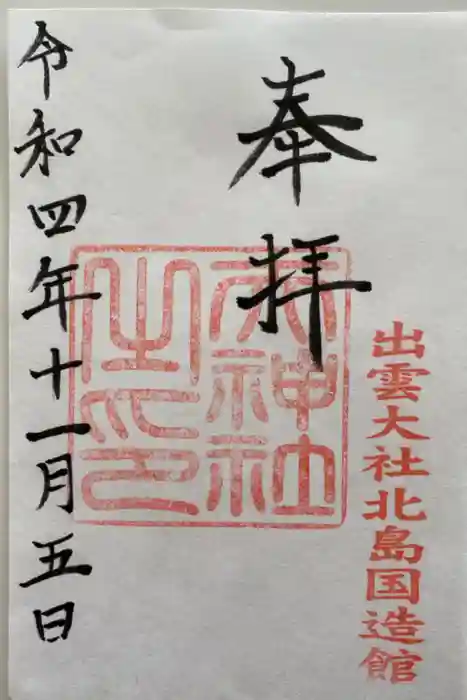 奉拝
出雲大社北島国造館
神社
之印
令和四年十一月五日